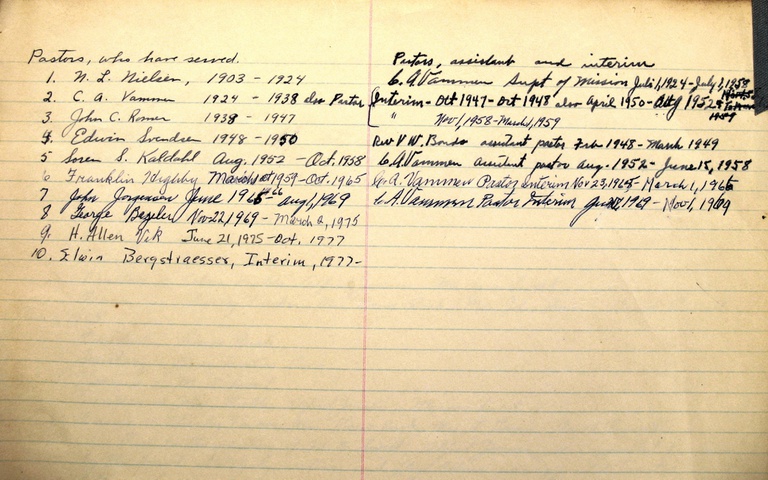 Pastors, who have served.
1. N. L. Nielsen, 1903 - 1924
2. C. A. Vammen 1924 - 1938 also Pastor
3. John C. Romer 1938 - 1947
4. Edwin Svendsen 1948 - 1950
5 Soren S. Kaldahl Aug. 1952 - Oct. 1958
6 Franklin Highby March 1st 1959 - Oct. 1965
7 John Jorgensen June 1966 - Aug 1, 1969
8 George Beyeler Nov 22, 1969 - March 2, 1975
9. H. Allen Vik June 21, 1975 - Oct. 1977
10. Elwin Bergstraesser, Interim, 1977-
Pastors, assistant and interim
C. A. Vammen Supt of Mission July 1, 1924 - July 1, 1959
Interim - Oct 1947 - Oct 1948 also April 1950 - Aug 1952
" Nov 1, 1958 - March 1, 1959
Rev V W. assistant pastor Feb 1948 - March 1949
C. A. Vammen assistant pastor Aug. 1952 - June 15, 1958
C. A. Vammen Pastor Interim Nov 23, 1965 - March 1, 1966
C. A. Vammen Pastor Interim 1969 - Nov 1, 1969